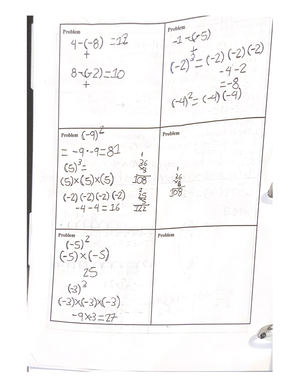 Problem
4-(-8) = 12
+
8-(-2) = 10
+
Problem
-1-(-5)
+
(-2)³ = (-2)(-2)(-2)
-4-2
= -8
(-4)² = (-4)(-4)
Problem (-9)²
= -9·-9 = 81
(5)³ =
(5)×(5)×(5)
(-2)(-2)(-2)(-2)
-4-4 = 16
108
Problem
108
Problem
(-5)²
(-5)×(-5)
25
(-3)³
(-3)×(-3)×(-3)
-9×3 = 27
Problem